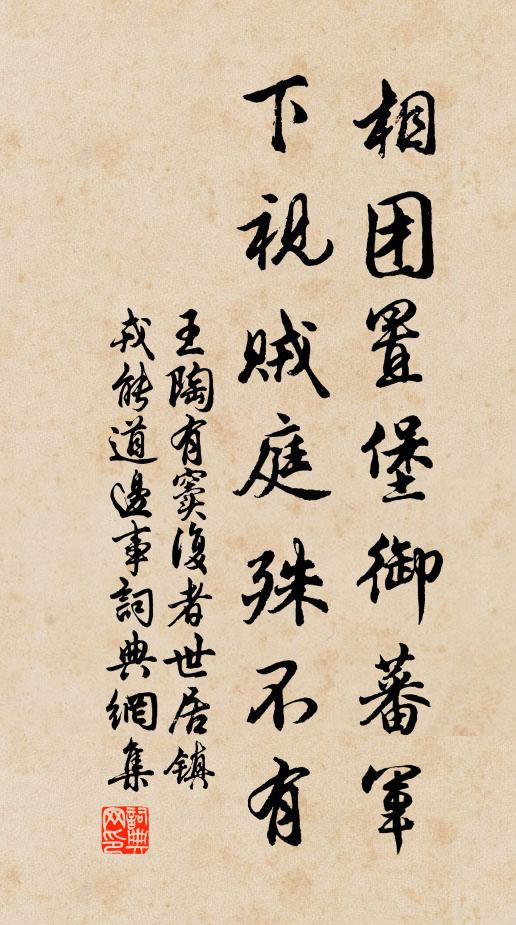 相团置堡御蕃军
下视贼庭殊不有
王陶有窦復者世居镇
戎能道邊事詞典網集
詞典网印